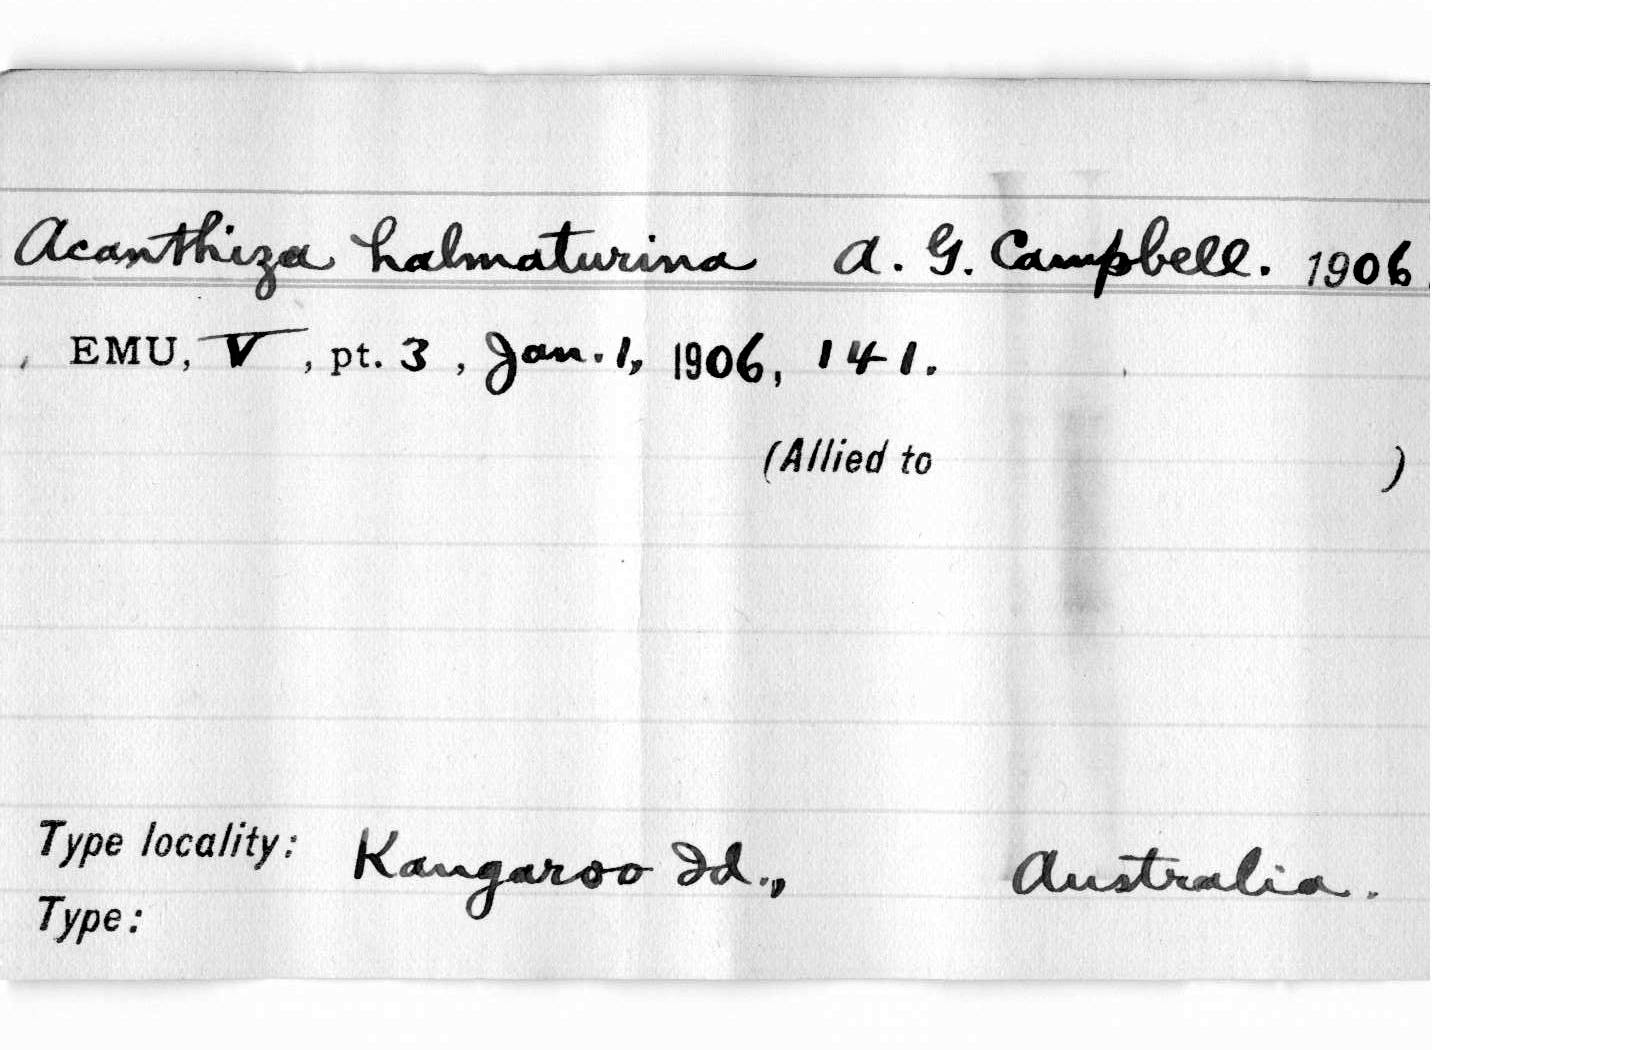 Acanthiza halmaturina A. G. Campbell. 1906.
EMU, V, pt. 3, Jan. 1, 1906, 141.
(Allied to )
Type locality: Kangaroo Id., Australia.
Type: